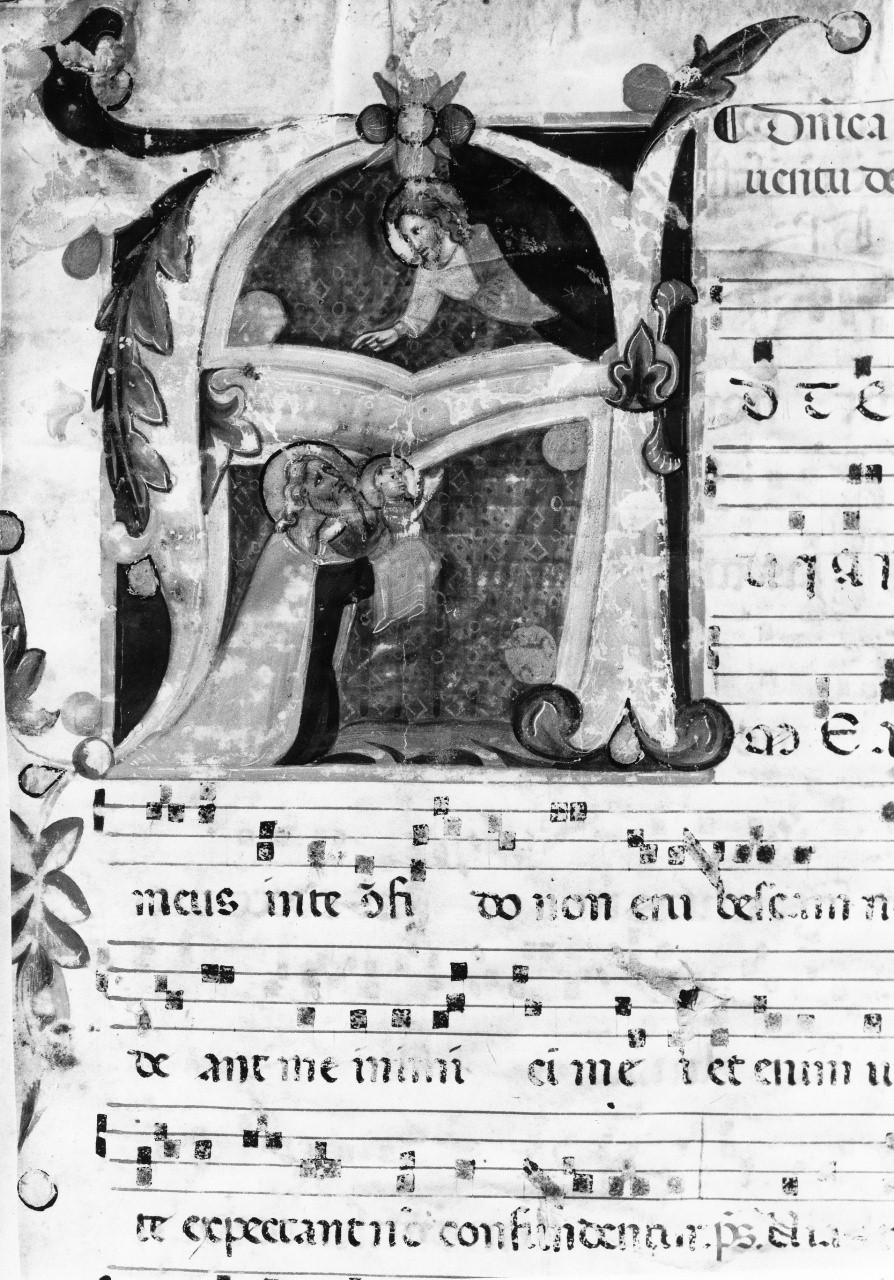 Dn̄ica
uentu de
d te le
am
m e. .
meus in te ōfi do non eru bescam n
de ant me inimi ci me i et enim u
te expectant nō confundentur. p̄s. Uia